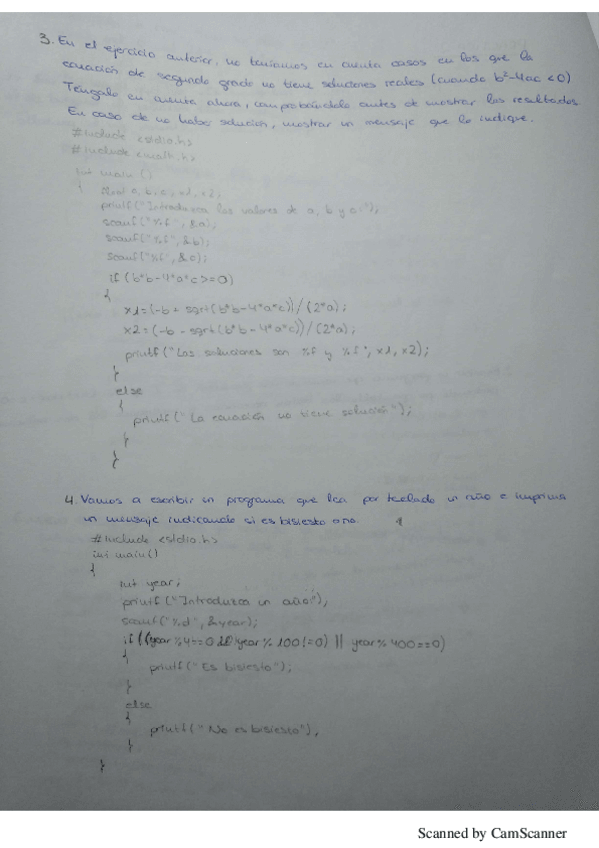 3. En el ejercicio anterior, no teníamos en cuenta casos en los que la
ecuación de segundo grado no tiene soluciones reales (cuando b²-4ac <0)
Téngalo en cuenta ahora, comprobándolo antes de mostrar los resultados.
En caso de no haber solución, mostrar un mensaje que lo indique.
#include <stdio.h>
#include <math.h>
int main ()
{ float a, b, c, x1, x2;
printf("Introduzca los valores de a, b y c:");
scanf("%f", &a);
scanf("%f", &b);
scanf("%f", &c);
if (b*b-4*a*c>=0)
{
x1=(-b + sqrt(b*b-4*a*c))/(2*a);
x2=(-b - sqrt(b*b-4*a*c))/(2*a);
printf("Las soluciones son %f y %f", x1, x2);
}
else
{
printf("La ecuación no tiene solución");
}
}
4. Vamos a escribir un programa que lea por teclado un año e imprima
un mensaje indicando si es bisiesto o no.
#include <stdio.h>
int main()
{
int year;
printf("Introduzca un año:");
scanf("%d", &year);
if ((year%4==0 && year%100!=0) || year%400==0)
{
printf("Es bisiesto");
}
else
{
printf("No es bisiesto");
}
}
Scanned by CamScanner